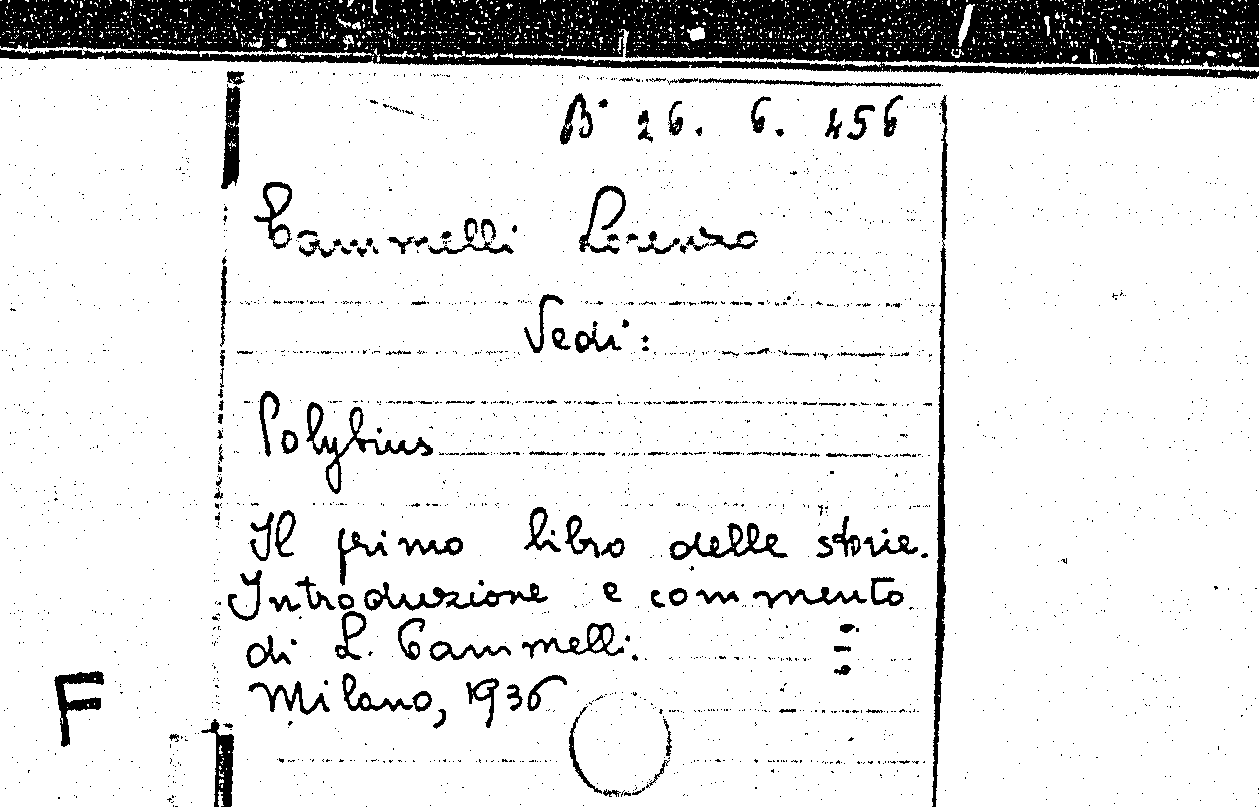 B. 26. 6. 456
Cammelli Lorenzo
Vedi:
Polybius
Il primo libro delle storie.
Introduzione e commento
di L. Cammelli.
Milano, 1936
F